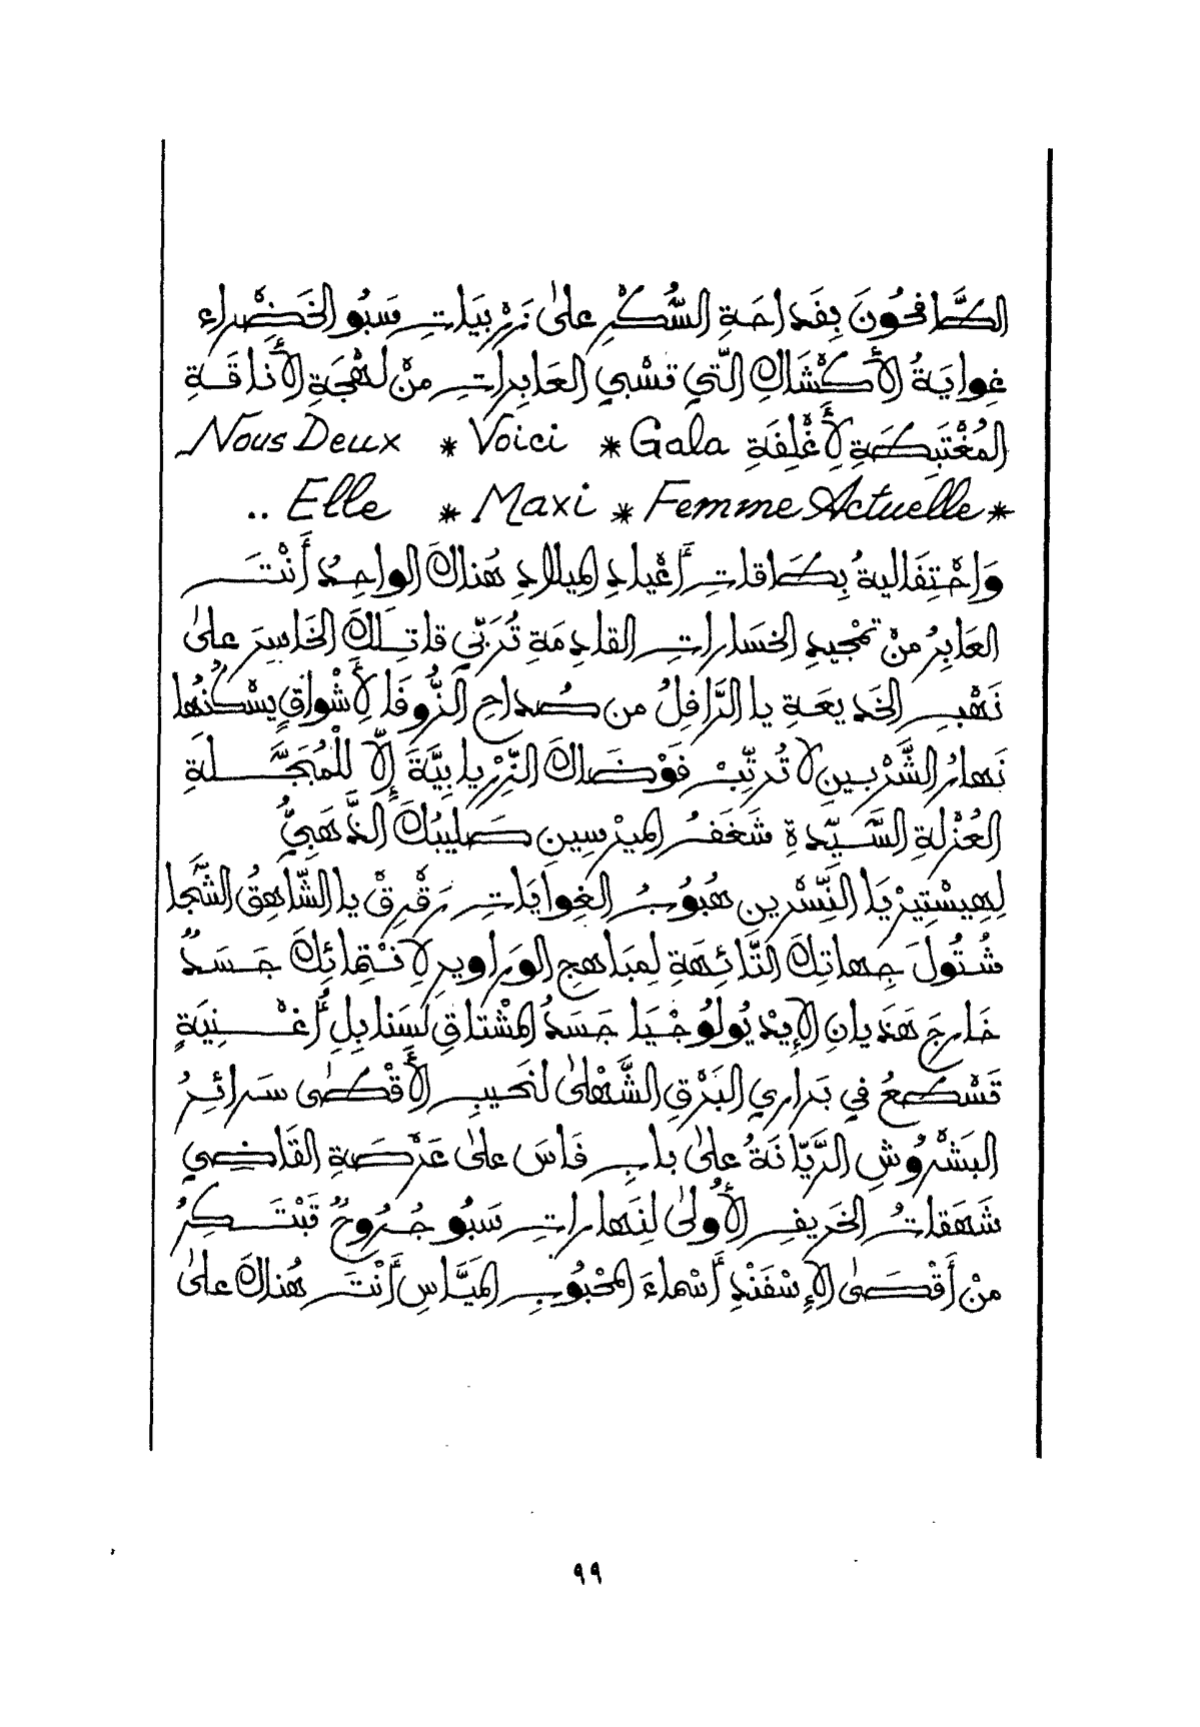 الطَّافِحُونَ بِفَدَاحَةِ السُّكْرِ عَلىٰ زَرْبِيَاتِ سَبُو الخَضْراءِ
غِوايَةُ الأَكْشَاكِ الَّتِي تَسْبِي العَابِراتِ مِنْ لَهْجَةِ الأَنَاقَةِ
المُغْتَبِطَةِ لِأَغْلِفَةِ Gala * Voici * Nous Deux
* Femme Actuelle * Maxi * Elle ..
وَاحْتِفَاليةُ بِطَاقاتِ أَعْيادِ الميلادِ هُناكَ الواحِدُ أَنْتَ
العَابِرُ مِنْ تَمْجيدِ الخسَاراتِ القادِمَةِ تُرَبِّي قاتِلَكَ الخَاسِرَ عَلىٰ
نَهْبِ الخَديعَةِ يا الرَّافِلُ من صُداحِ الزُّوفَا لِأَشْواقٍ يَسْكُنُها
نَهارُ الشَّرْبينِ لا تُرتِّبْ فَوْضَاكَ الزِّرْيابِيَّةَ إِلّا لِلْمُبَجَّلَةِ
العُزْلةِ السَّيِّدةِ شَغَفُ الميرْسِينِ صَلِيبُكَ الذَّهَبِيُّ
لِهِيسْتِيرْيَا النِّسْرينِ هُبُوبُ الغِوايَاتِ رَقْرِقْ يا الشَّاهِقُ الشَّجا
شُتُولَ جِهاتِكَ التَّائِهَةِ لِمَبَاهِجِ الوَراويرِ لِانْتِمائِكَ جَسَدٌ
خَارِجَ هَذَيانِ الإِيدْيُولُوجْيَا جَسَدُ المُشْتاقِ لسَنابِلِ أُغْنِيَةٍ
تَسْطَعُ في بَراري البَرْقِ الشَّهْلىٰ لنَحيبِ الأَقْصىٰ سَرائِرُ
البَشْرُوشِ الرَّيّانَةُ عَلىٰ بابِ فَاسَ عَلىٰ عَرْصَةِ القَاضِي
شَهَقاتُ الخَريفِ الأُولىٰ لِنَهاراتِ سَبُو جُرُوحٌ تَبْتَكِرُ
مِنْ أَقْصَىٰ الإِسْفَنْدِ أَسْماءَ المَحْبُوبِ المَيَّاسِ أَنْتَ هُناكَ عَلىٰ
٩٩